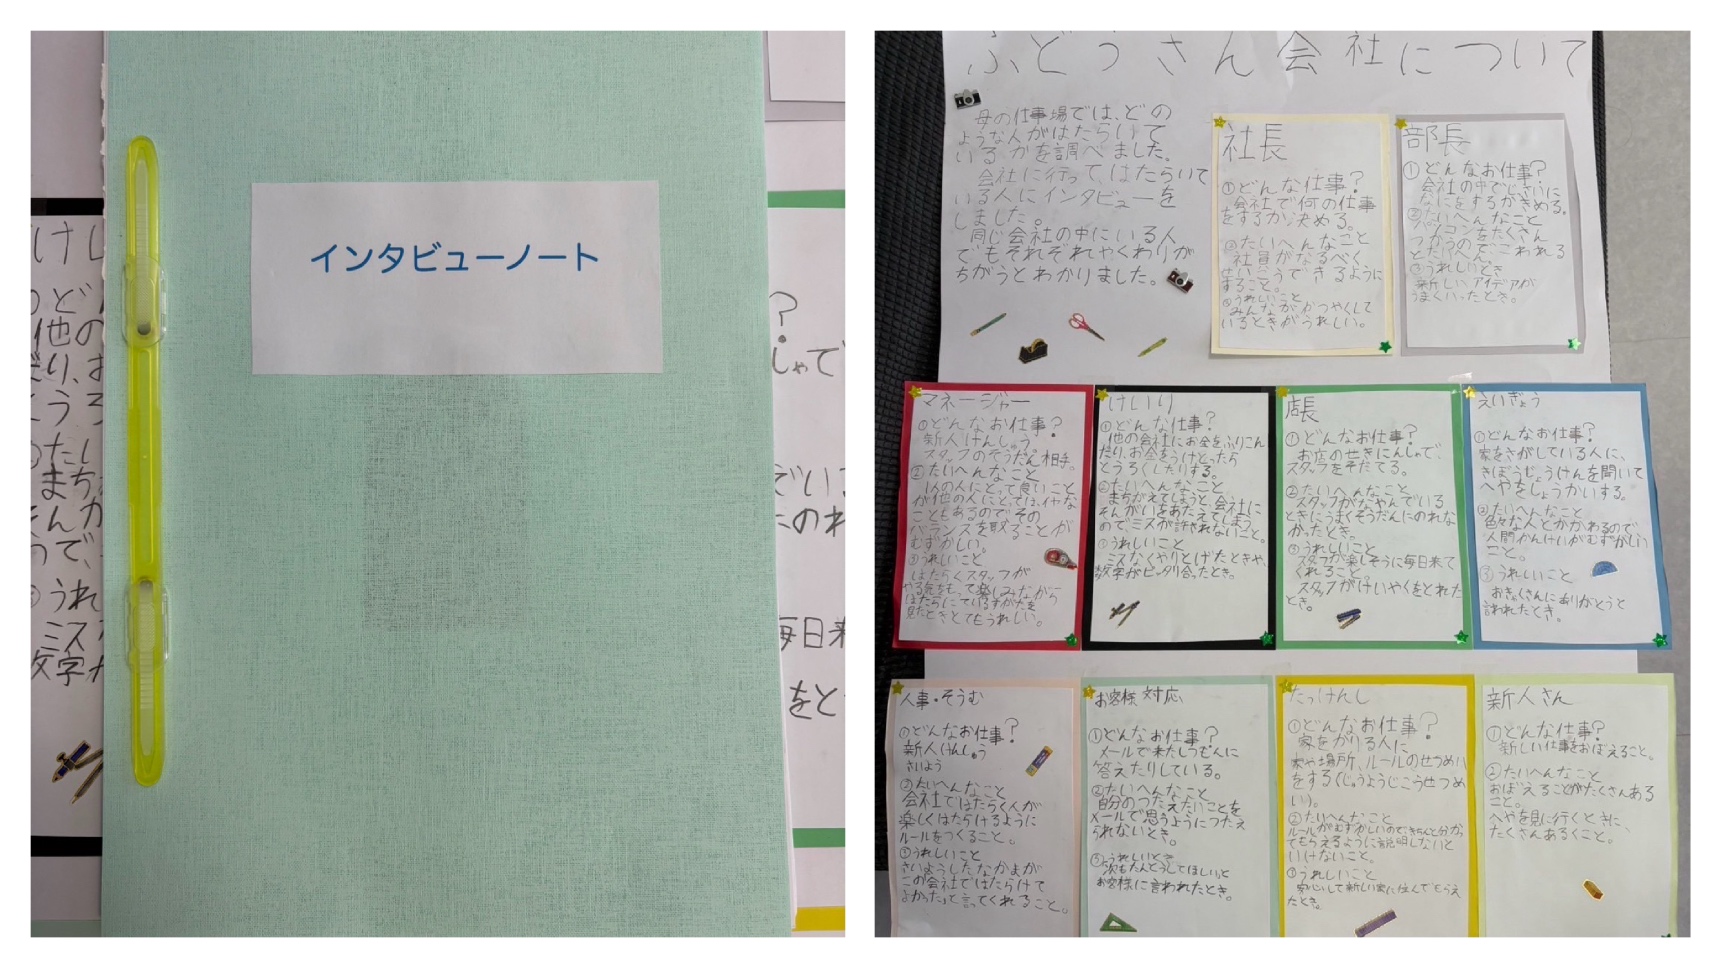 インタビューノート
ふどうさん会社について
母の仕事場では、どの
ような人がはたらいて
いるかを調べました。
会社に行って、はたらいて
いる人にインタビューを
しました。
同じ会社の中にいる人
でもそれぞれやくわりが
ちがうとわかりました。
社長
①どんな仕事?
会社で何の仕事
をするか決める。
②たいへんなこと
社員がなるべく
できるように
すること。
③うれしいこと
みんながかつやくして
いるときがうれしい。
部長
①どんなお仕事?
会社の中でじっさいに
なにをするかきめる。
②たいへんなこと
パソコンをたくさん
つかうので、こわれる
とたいへん。
③うれしいとき
新しいアイデアが
うまくいったとき。
マネージャー
①どんなお仕事?
新人けんしゅう。
スタッフのそうだん相手。
②たいへんなこと
1人の人にとって良いこと
が他の人にとってはイヤな
こともあるので、その
バランスを取ることが
むずかしい。
③うれしいこと
はたらくスタッフが
やる気をもって楽しみながら
はたらいているすがたを
見たときとてもうれしい。
けいり
①どんなお仕事?
他の会社にお金をふりこん
だり、お金をうけとったら
とうろくしたりする。
②たいへんなこと
まちがえてしまうと会社に
そんがいをあたえてしまう
のでミスが許されないこと。
③うれしいこと
ミスなくやりとげたときや、
数字がピッタリ合ったとき。
店長
①どんなお仕事?
お店のせきにんしゃで、
スタッフをそだてる。
②たいへんなこと
スタッフがなやんでいる
ときにうまくそうだんにのれな
かったとき。
③うれしいこと
スタッフが楽しそうに毎日来て
くれること。
スタッフがけいやくをとれた
とき。
えいぎょう
①どんなお仕事?
家をさがしている人に、
きぼうじょうけんを聞いて
へやをしょうかいする。
②たいへんなこと
色々な人とかかわるので、
人間かんけいがむずかしい
こと。
③うれしいこと
おきゃくさんにありがとうと
言われたとき。
人事・そうむ
①どんなお仕事?
新人けんしゅう
さいよう
②たいへんなこと
会社ではたらく人が
楽しくはたらけるように
ルールをつくること。
③うれしいこと
さいようしたなかまが
この会社ではたらけて
よかったと言ってくれること。
お客様対応
①どんなお仕事?
メールで来たしつもんに
答えたりしている。
②たいへんなこと
自分のつたえたいことを
メールで思うようにつたえ
られないとき。
③うれしいとき
次もたんとうしてほしいと
お客様に言われたとき。
たっけんし
①どんなお仕事?
家をかりる人に
家や場所、ルールのせつめい
をする(じゅうようじこうせつめ
い)。
②たいへんなこと
ルールがむずかしいので、きちんと分かっ
てもらえるように説明しないと
いけないこと。
③うれしいこと
安心して新しい家に住んでもらえ
たとき。
新人さん
①どんなお仕事?
新しい仕事をおぼえること。
②たいへんなこと
おぼえることがたくさんある
こと。
へやを見に行くときに、
たくさんあるくこと。